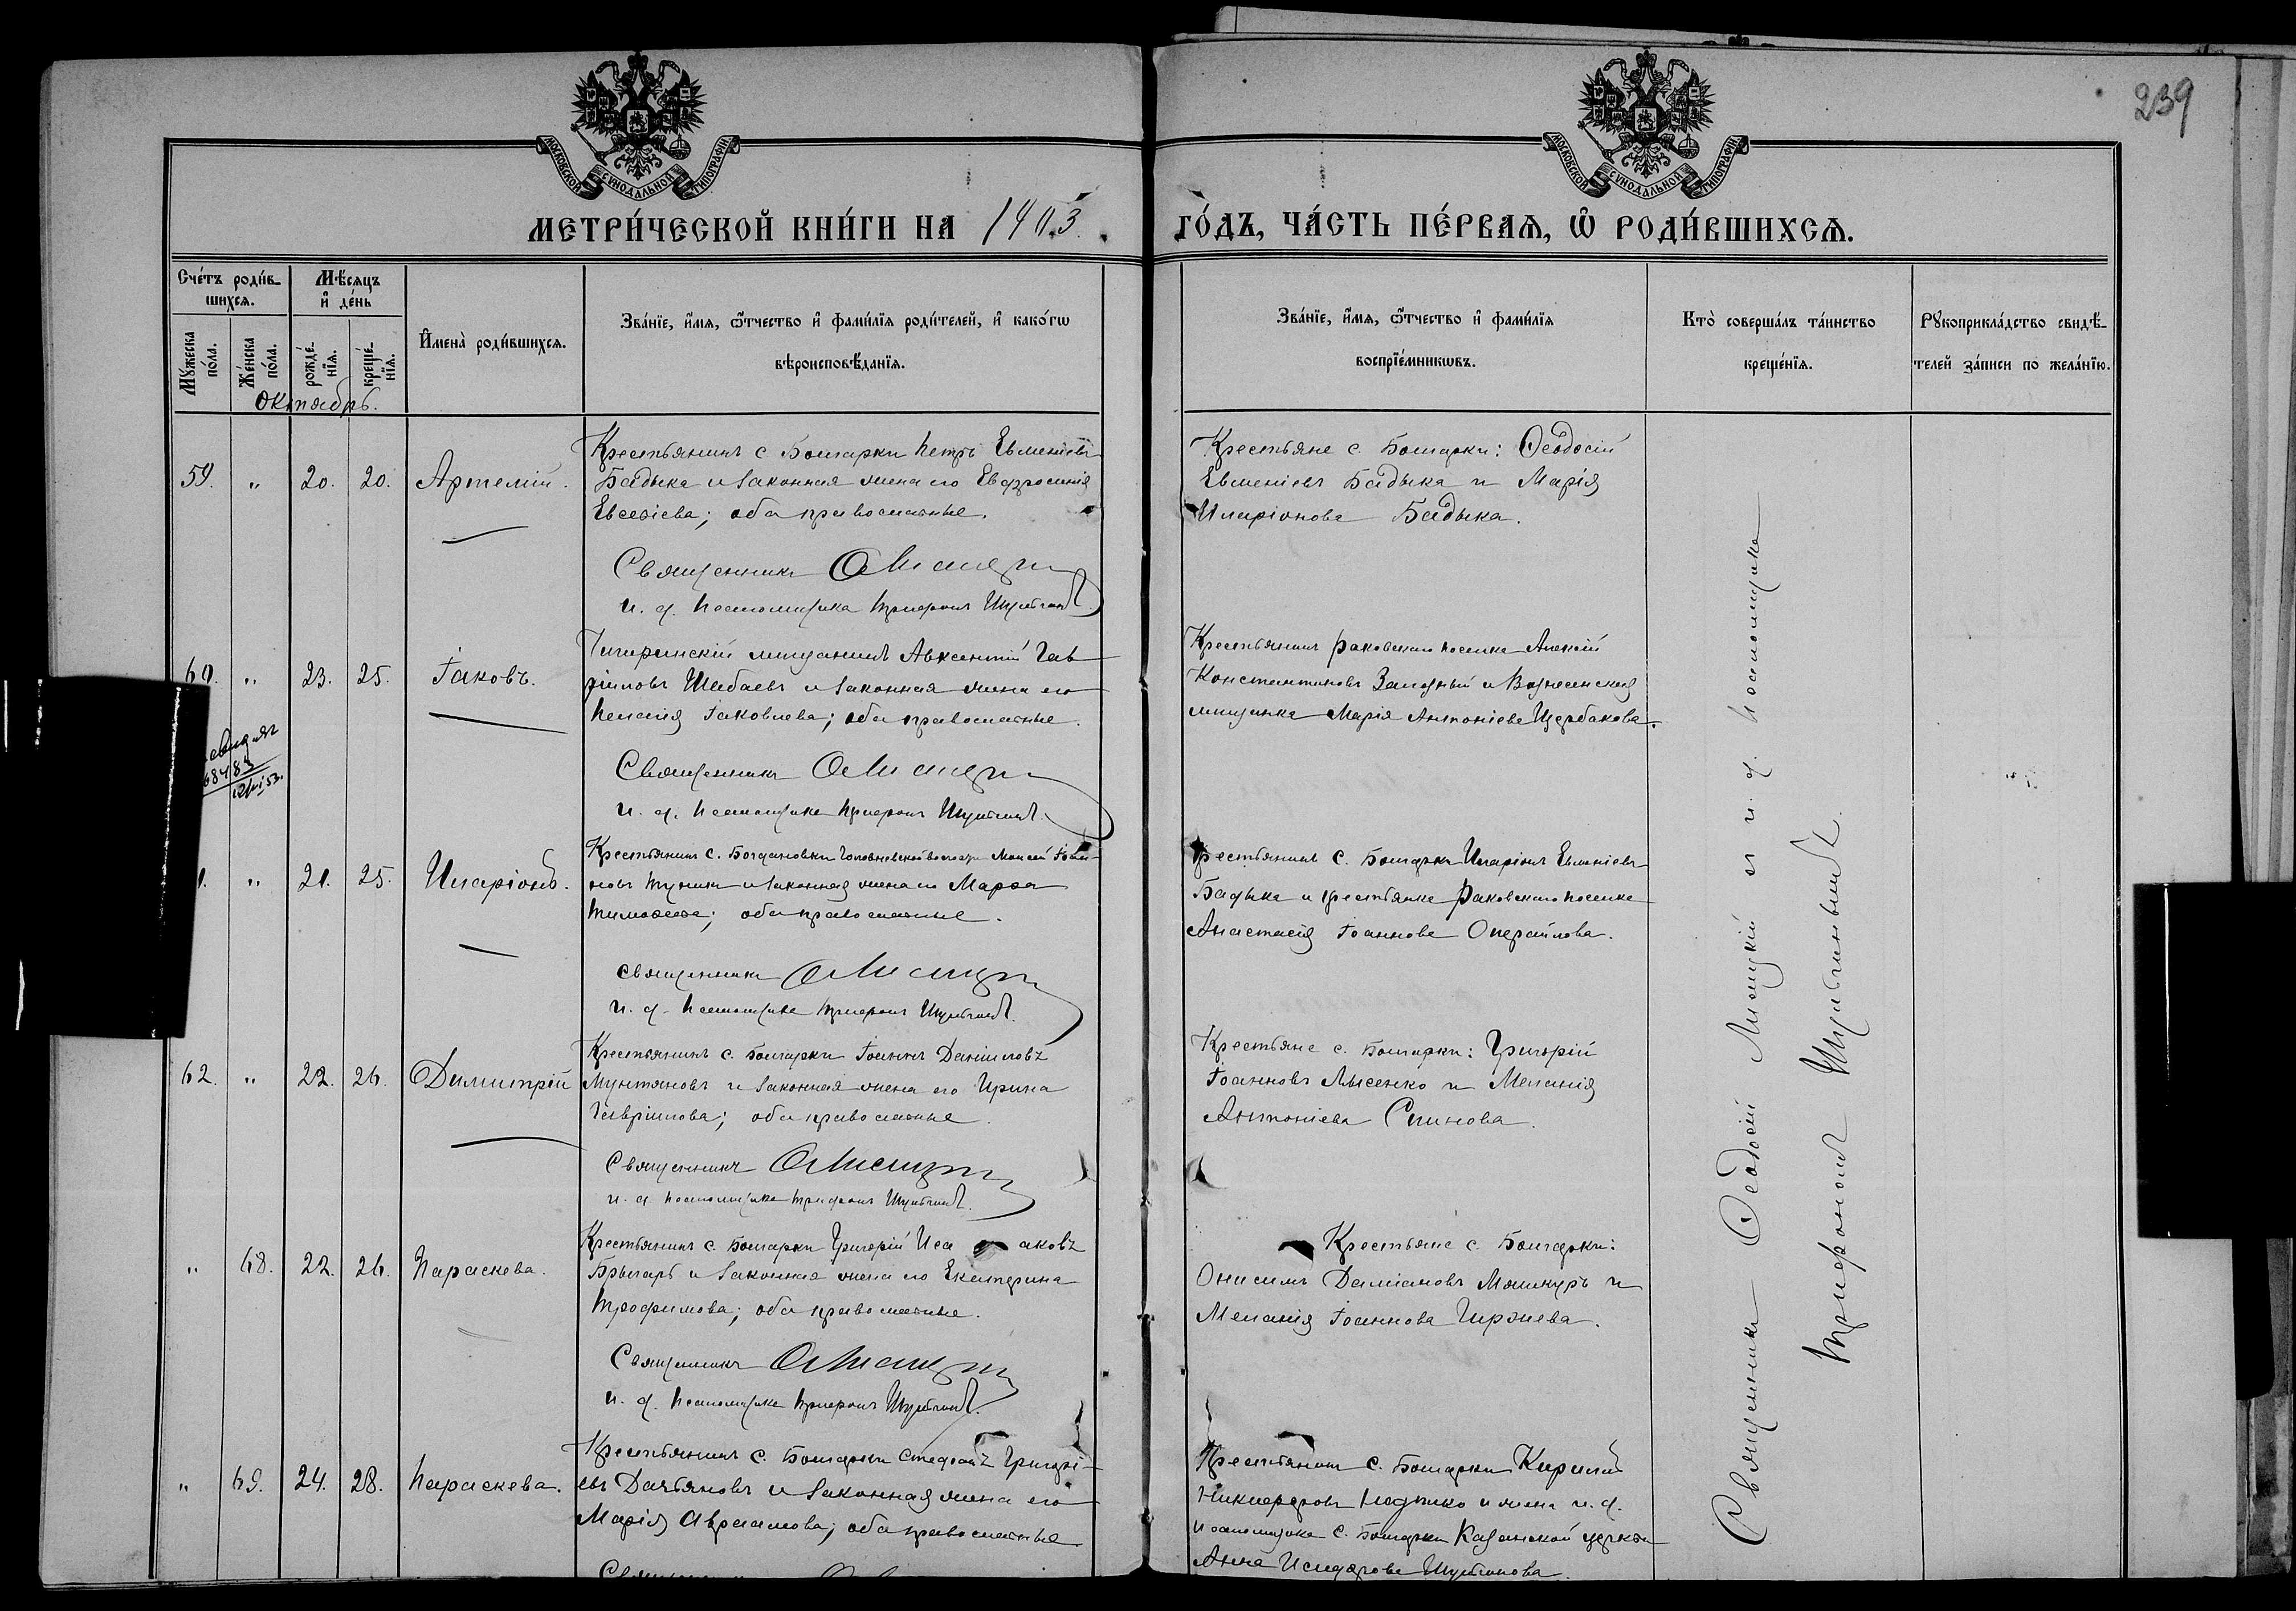 239
МОСКОВСКОЙ СѴНОДАЛЬНОЙ ТИПОГРАФІИ
МОСКОВСКОЙ СѴНОДАЛЬНОЙ ТИПОГРАФІИ
МЕТРИ́ЧЕСКОЙ КНИ́ГИ НА 1903 ГО́ДЪ, ЧА́СТЬ ПЕ́РВАѦ, Ѡ҆ РОДИ́ВШИХСѦ.
Сче́тъ роди́в-
шихсѧ.
Мꙋ́жеска по́ла.
Же́нска по́ла.
Мѣ́сѧцъ
и҆ де́нь
рожде́-
нїѧ.
креще́-
нїѧ.
И҆мена̀ роди́вшихсѧ.
Зва́нїе, и҆́мѧ, ѻ҆́тчество и҆ фами́лїѧ роди́телей, и҆ како́гѡ
вѣроисповѣ́данїѧ.
Зва́нїе, и҆́мѧ, ѻ҆́тчество и҆ фами́лїѧ
воспрїе́мникѡвъ.
Кто̀ соверша́лъ та́инство
креще́нїѧ.
Рꙋкоприкла́дство свидѣ́-
телей за́писи по жела́нїю.
Октябрь.
59. " 20. 20. Артемій.
Крестьянинъ с. Болгарки Петръ Евменіевъ
Бадыка и законная жена его Евфросинія
Евсевіева; оба православные.
Священникъ
и. д. псаломщика Трифонъ
Крестьяне с. Болгарки: Ѳеодосій
Евменіевъ Бадыка и Марія
Иларіонова Бадыка.
60. " 23. 25. Іаковъ.
Чигиринскій мещанинъ Авксентій Гав-
ріиловъ Шебаевъ и законная жена его
Пелагія Іаковлева; оба православные.
Священникъ
и. д. псаломщика Трифонъ
Крестьянинъ Раковскаго поселка Алексій
Константиновъ и Вознесенская
мещанка Марія Антоніева Щербакова.
" 21. 25. Иларіонъ.
Крестьянинъ с. Богдановки волости Моисей Іоан-
новъ и законная жена его Марѳа
Тимоѳеева; оба православные.
Священникъ
и. д. псаломщика Трифонъ
Крестьянинъ с. Болгарки Иларіонъ Евменіевъ
Бадыка и крестьянка Раковскаго поселка
Анастасія Іоаннова
62. " 22. 26. Димитрій
Крестьянинъ с. Болгарки Іоаннъ Даніиловъ
Мунтяновъ и законная жена его Ирина
Гавріилова; оба православные.
Священникъ
и. д. псаломщика Трифонъ
Крестьяне с. Болгарки: Григорій
Іоанновъ Лысенко и Меланія
Антоніева Спинова.
" 68. 22. 26. Параскева.
Крестьянинъ с. Болгарки Григорій Иса аковъ
Брыгарь и законная жена его Екатерина
Трофимова; оба православные.
Священникъ
и. д. псаломщика Трифонъ
Крестьяне с. Болгарки:
Онисимъ Даміановъ и
Меланія Іоаннова
" 69. 24. 28. Параскева.
Крестьянинъ с. Болгарки Стефанъ Григорі-
евъ и законная жена его
Марія Авраамова; оба православные
Крестьянинъ с. Болгарки Кириллъ
Никифоровъ и жена и. д.
псаломщика с. Болгарки Казанской церкви
Анна Исидорова
Священникъ Ѳеодосій Лисицкій съ и. д. псаломщика
Трифономъ